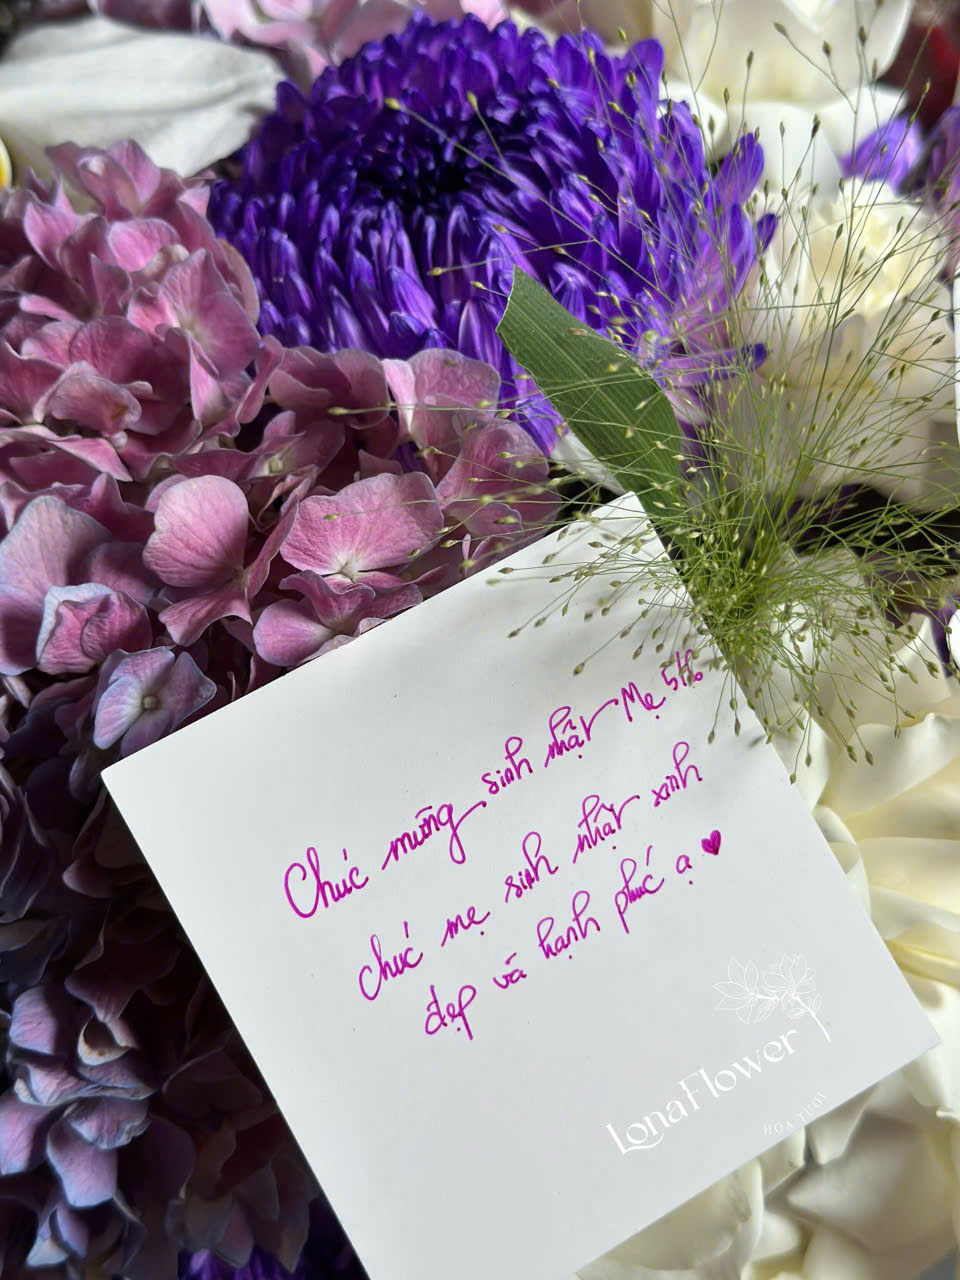 Chúc mừng sinh nhật Mẹ
chúc mẹ sinh nhật xinh
đẹp và hạnh phúc ạ ♥
LonaFlower
HOA TƯƠI